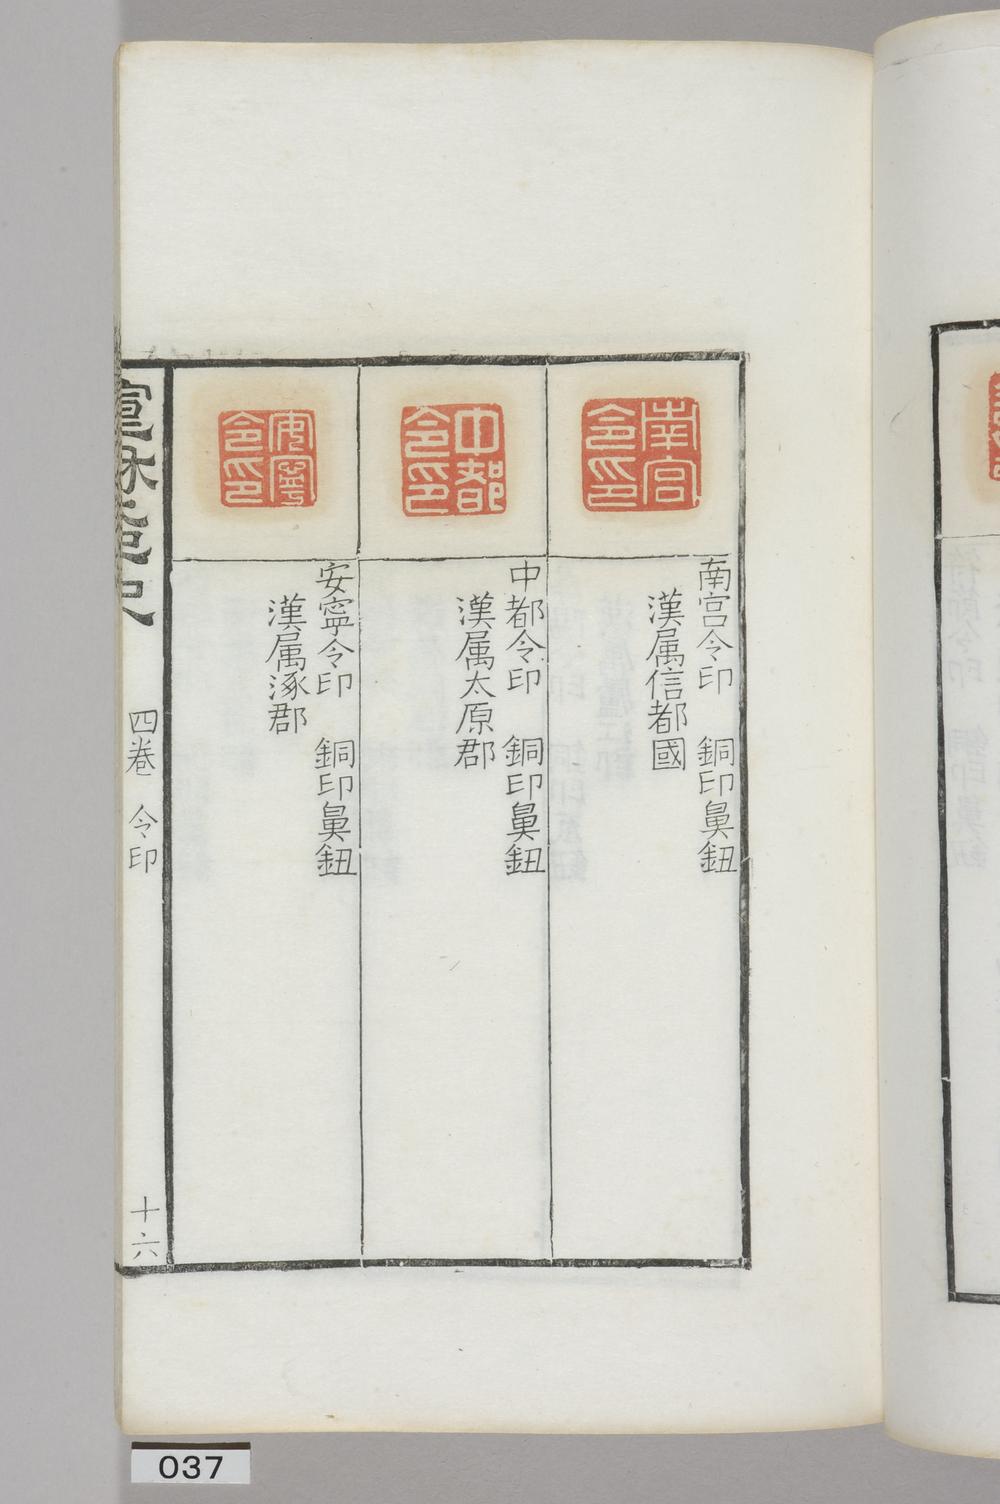 南宮
令印
南宮令印 銅印鼻鈕
漢属信都國
中都
令印
中都令印 銅印鼻鈕
漢属太原郡
安寧
令印
安寧令印 銅印鼻鈕
漢属涿郡
宣和集古印史 四卷 令印 十六
037